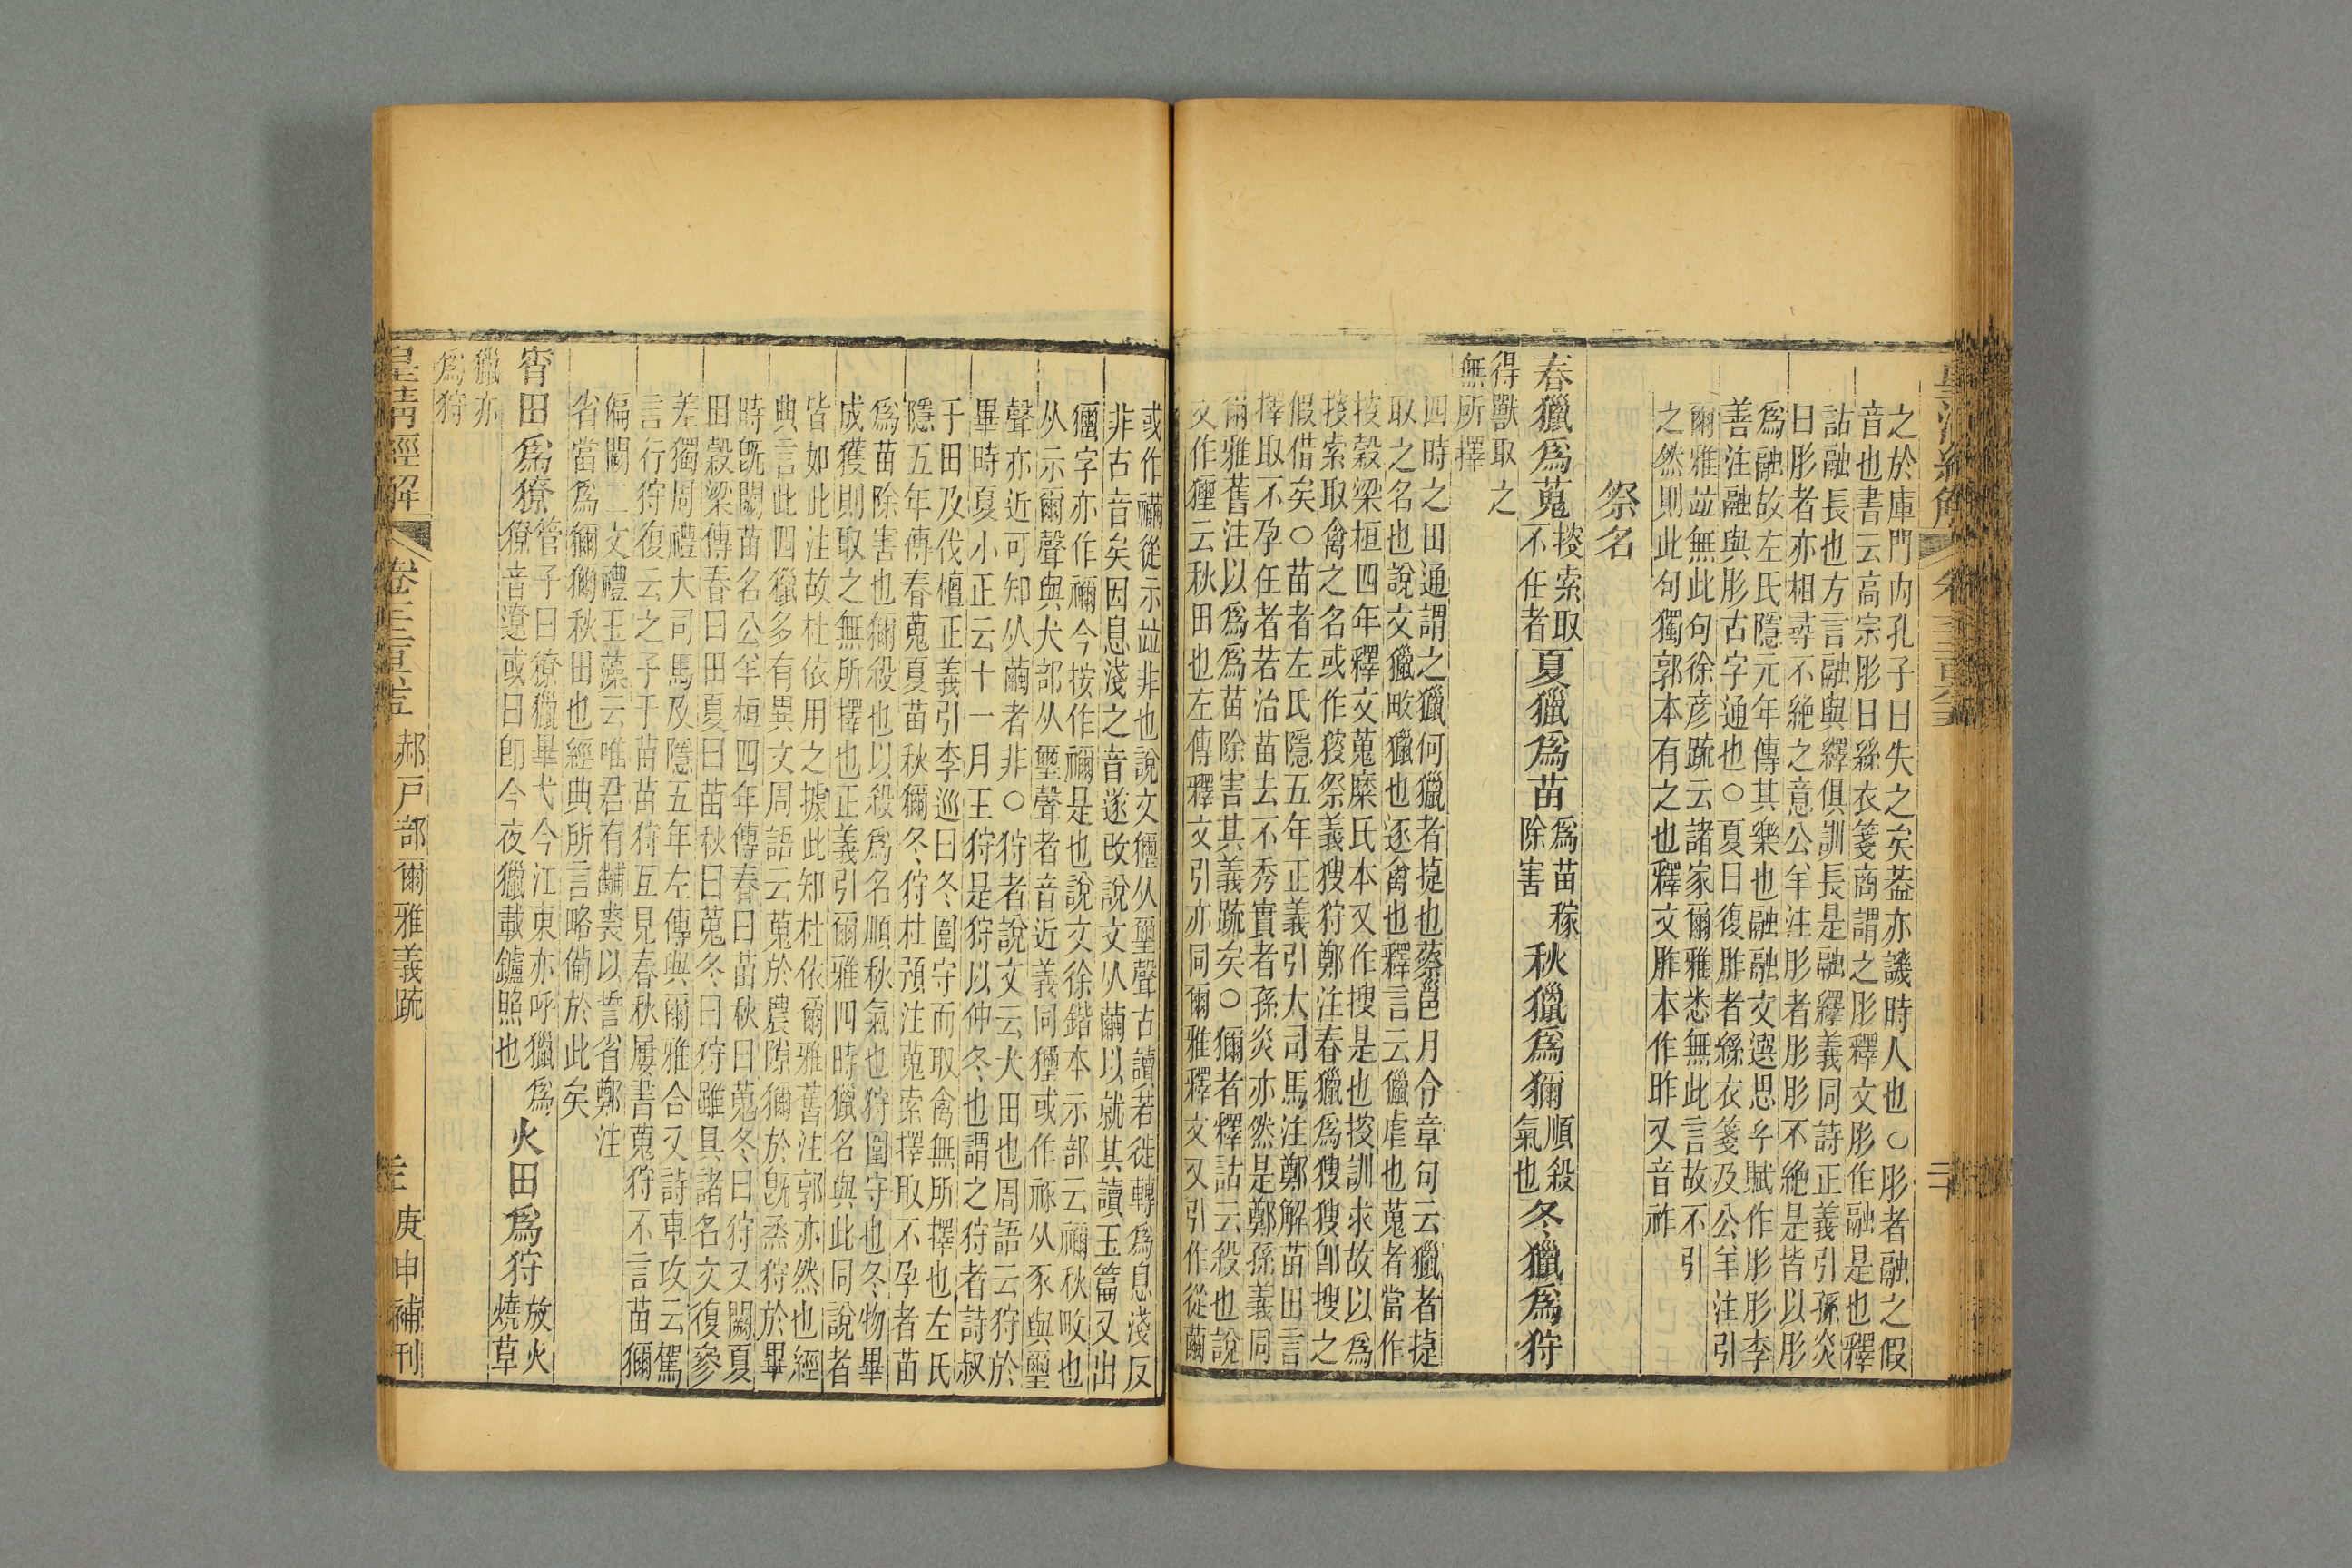 之於庫門內孔子曰失之矣葢亦譏時人也○肜者融之假
音也書云高宗肜日絲衣箋商謂之肜釋文肜作融是也釋
詁融長也方言融與繹俱訓長是融繹義同詩正義引孫炎
曰肜者亦相尋不絶之意公羊注肜者肜肜不絶是皆以肜
爲融故左氏隱元年傳其樂也融融文選思𤣥賦作肜肜李
善注融與肜古字通也○夏曰復胙者絲衣箋及公羊注引
爾雅竝無此句徐彦疏云諸家爾雅悉無此言故不引
之然則此句獨郭本有之也釋文胙本作昨又音祚
祭名
春獵爲蒐
搜索取
不任者
夏獵爲苗
爲苗稼
除害
秋獵爲獮
順殺
氣也
冬獵爲狩
得獸取之
無所擇
四時之田通謂之獵何獵者捷也蔡邕月令章句云獵者捷
取之名也說文獵畋獵也逐禽也釋言云獵虐也蒐者當作
搜穀梁桓四年釋文蒐糜氏本又作搜是也搜訓求故以爲
搜索取禽之名或作獀祭義獀狩鄭注春獵爲獀獀卽搜之
假借矣○苗者左氏隱五年正義引大司馬注鄭解苗田言
擇取不孕任者若治苗去不秀實者孫炎亦然是鄭孫義同
爾雅舊注以爲爲苗除害其義疏矣○獮者釋詁云殺也說
文作玃云秋田也左傳釋文引亦同爾雅釋文又引作從繭
或作襺從示竝非也說文玃从璽聲古讀若徙轉爲息淺反
非古音矣因息淺之音遂改說文从繭以就其讀玉篇又出
玃字亦作禰今按作禰是也說文徐鍇本示部云禰秋畋也
从示爾聲與犬部从璽聲者音近義同玃或作䄏从豕與璽
聲亦近可知从繭者非○狩者說文云犬田也周語云狩於
畢時夏小正云十一月王狩是狩以仲冬也謂之狩者詩叔
于田及伐檀正義引李巡曰冬圍守而取禽無所擇也左氏
隱五年傳春蒐夏苗秋獮冬狩杜預注蒐索擇取不孕者苗
爲苗除害也獮殺也以殺爲名順秋氣也狩圍守也冬物畢
成獲則取之無所擇也正義引爾雅四時獵名與此同說者
皆如此注故杜依用之據此知杜依爾雅舊注郭亦然也經
典言此四獵多有異文周語云蒐於農隙獮於旣烝狩於畢
時旣闕苗名公羊桓四年傳春曰苗秋曰蒐冬曰狩又闕夏
田穀梁傳春曰田夏曰苗秋曰蒐冬曰狩雖具諸名文復參
差獨周禮大司馬及隱五年左傳與爾雅合又詩車攻云駕
言行狩復云之子于苗苗狩互見春秋屢書蒐狩不言苗獮
偏闕二文禮玉藻云唯君有黼裘以誓省鄭注
省當爲獮獮秋田也經典所言略備於此矣
宵田爲獠
管子曰獠獵畢弋今江東亦呼獵爲
獠音遼或曰卽今夜獵載鑪照也
火田爲狩
放火
燒草
獵亦
爲狩
皇淸經解 郝戸部爾雅義疏 庚申補刊